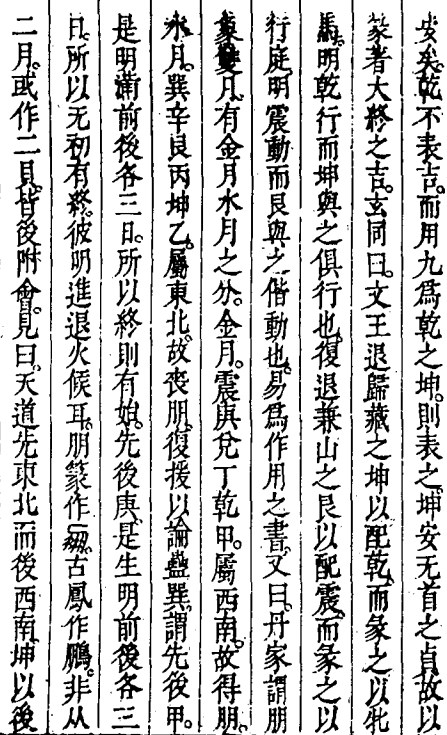 安矣。乾不表吉。而用九爲乾之坤。則表之。坤安无首之貞。故以
彖著大終之吉。玄同曰。文王退歸藏之坤以配乾。而彖之以牝
馬。明乾行而坤與之俱行也。復退兼山之艮以配震。而彖之以
行庭。明震動而艮與之偕動也。易爲作用之書。又曰。丹家謂朋
象雙月。有金月水月之分。金月。震庚兌丁乾甲。屬西南。故得朋。
水月。巽辛艮丙坤乙。屬東北。故喪朋。復援以論蠱巽。謂先後甲。
是明滿前後各三日。所以終則有始。先後庚。是生明前後各三
日。所以无初有終。彼明進退火候耳。朋篆作。古鳳作鵬。非从
二月。或作二貝。皆後附會。見曰。天道先東北而後西南。坤以後